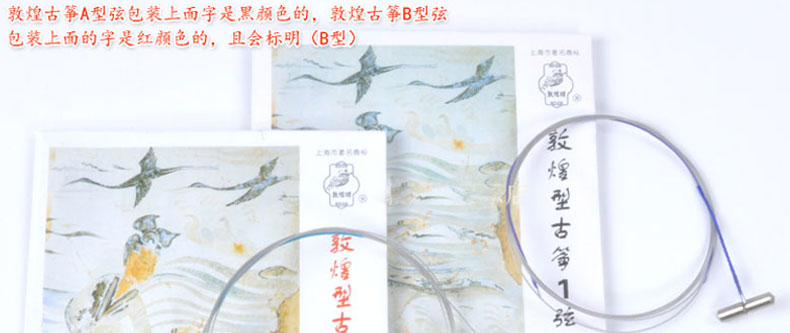 敦煌古筝A型弦包装上面字是黑颜色的，敦煌古筝B型弦
包装上面的字是红颜色的，且会标明（B型）
上海市著名商标
敦煌牌
®
敦煌型古筝1弦
上海市著名商标
敦煌牌
®
敦煌型古